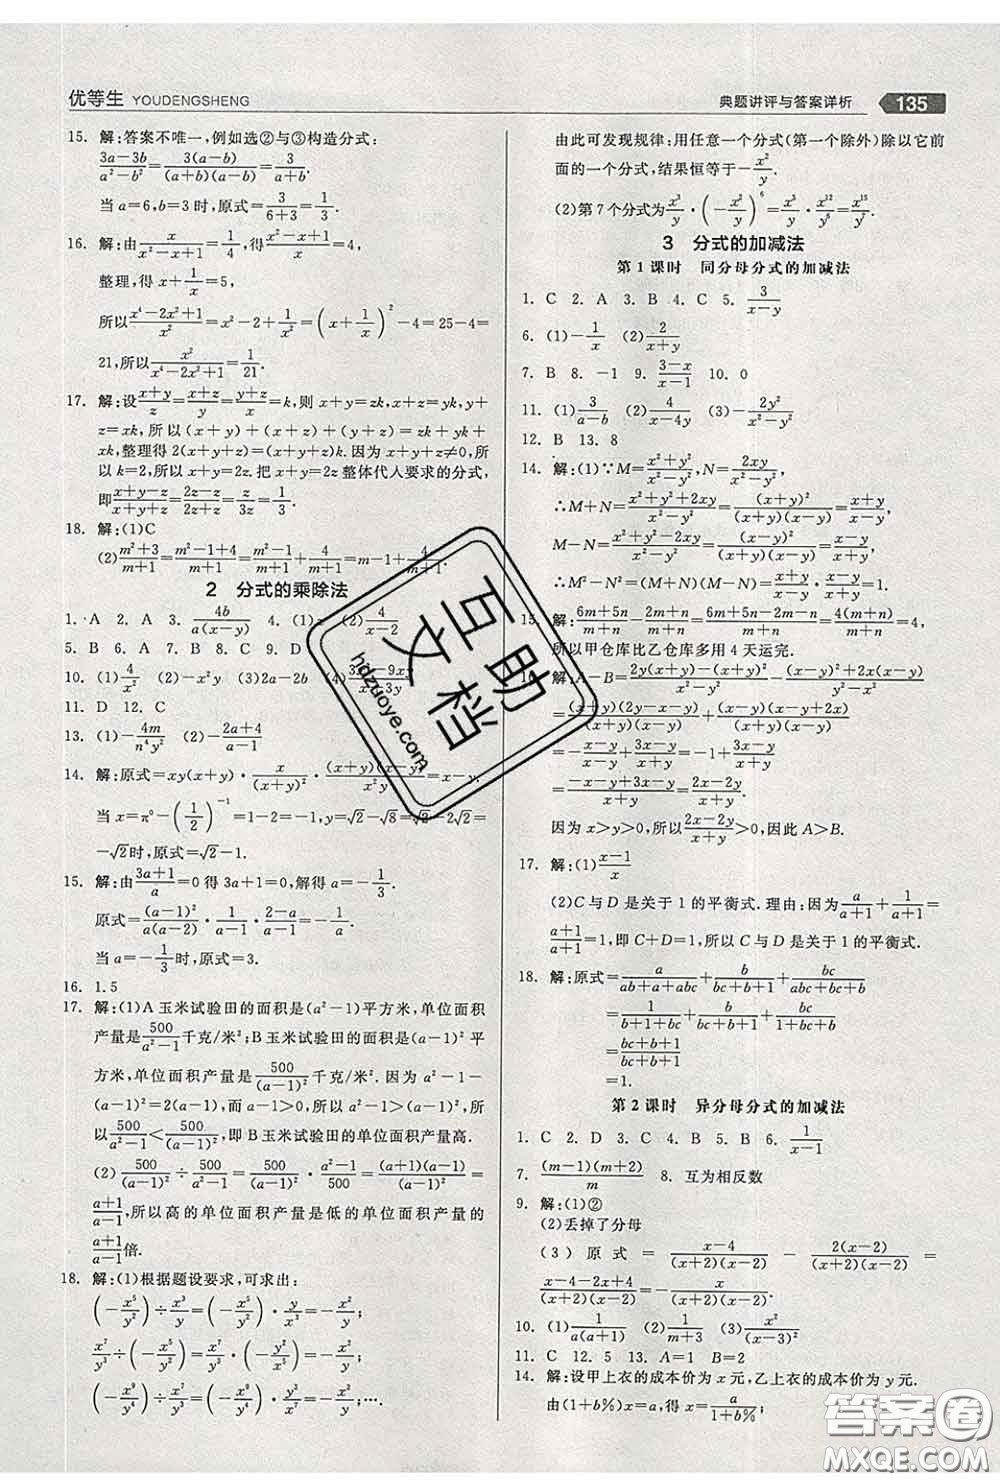 优等生 YOUDENGSHENG
典题讲评与答案详析 135
15. 解:答案不唯一,例如选②与③构造分式:
(3a-3b)/(a²-b²)=3(a-b)/((a+b)(a-b))=3/(a+b).
当 a=6,b=3 时,原式=3/(6+3)=1/3.
16. 解:由 x/(x²-x+1)=1/4,得 (x²-x+1)/x=4,
整理,得 x+1/x=5,
所以 (x⁴-2x²+1)/x²=x²-2+1/x²=(x+1/x)²-4=25-4=
21,所以 x²/(x⁴-2x²+1)=1/21.
17. 解:设 (x+y)/z=(x+z)/y=(y+z)/x=k,则 x+y=zk,x+z=yk,y+
z=xk,所以 (x+y)+(x+z)+(y+z)=zk+yk+
xk,整理得 2(x+y+z)=(x+y+z)k.因为 x+y+z≠0,所
以 k=2,所以 x+y=2z.把 x+y=2z 整体代入要求的分式,
即 (x+y-z)/(x+y+z)=(2z-z)/(2z+z)=z/3z=1/3.
18. 解:(1)C
(2)(m²+3)/(m+1)=(m²-1+4)/(m+1)=(m²-1)/(m+1)+4/(m+1)=m-1+4/(m+1).
2 分式的乘除法
5. B 6. A 7. A 8. B 9. D
11. D 12. C
13. (1)-4m/(n⁴y²) (2)-(2a+4)/(a-1)
15. 解:由 (3a+1)/a=0 得 3a+1=0,解得 a=-1/3.
原式=(a-1)²/(a(a-2))·1/(a-1)·(2-a)/(a-1)=-1/a.
当 a=-1/3 时,原式=3.
16. 1.5
17. 解:(1)A 玉米试验田的面积是(a²-1)平方米,单位面积
产量是 500/(a²-1) 千克/米²;B 玉米试验田的面积是(a-1)²平
方米,单位面积产量是 500/(a-1)² 千克/米².因为 a²-1-
(a-1)²=2(a-1),而 a-1>0,所以 0<(a-1)²<a²-1,所
以 500/(a²-1)<500/(a-1)²,即 B 玉米试验田的单位面积产量高.
(2)500/(a-1)²÷500/(a²-1)=500/(a-1)²·(a²-1)/500=(a+1)(a-1)/(a-1)²=
(a+1)/(a-1),所以高的单位面积产量是低的单位面积产量的
(a+1)/(a-1)倍.
18. 解:(1)根据题设要求,可求出:
(-x⁵/y²)÷x³/y=(-x⁵/y²)·y/x³=-x²/y;
x⁷/y³÷(-x⁵/y²)=x⁷/y³·(-y²/x⁵)=-x²/y;
(-x⁹/y⁴)÷x⁷/y³=(-x⁹/y⁴)·y³/x⁷=-x²/y;….
由此可发现规律:用任意一个分式(第一个除外)除以它前
面的一个分式,结果恒等于-x²/y.
(2)第 7 个分式为 x³/y·(-x²/y)⁶=x³/y·x¹²/y⁶=x¹⁵/y⁷.
3 分式的加减法
第 1 课时 同分母分式的加减法
1. C 2. A 3. B 4. C 5. 3/(x-y)
6. (1)-1/x (2)2/(x+y)
7. B 8. -1 9. (3-x)/(x-1) 10. 0
11. (1)3/(a-b) (2)4/(x-4y) (3)-2y²/(x²-y²)
12. B 13. 8
14. 解:(1)∵M=(x²+y²)/(x²-y²),N=2xy/(x²-y²),
∴M+N=(x²+y²+2xy)/(x²-y²)=(x+y)²/((x+y)(x-y))=(x+y)/(x-y),
M-N=(x²+y²-2xy)/(x²-y²)=(x-y)²/((x+y)(x-y))=(x-y)/(x+y).
∴M²-N²=(M+N)(M-N)=(x+y)/(x-y)·(x-y)/(x+y)=1.
15. 解:(6m+5n)/(m+n)-(2m+n)/(m+n)=(6m+5n-2m-n)/(m+n)=4(m+n)/(m+n)=4,
所以甲仓库比乙仓库多用 4 天运完.
因为 x>y>0,所以 (2x-2y)/(x+y)>0,因此 A>B.
17. 解:(1)(x-1)/x
(2)C 与 D 是关于 1 的平衡式.理由:因为 a/(a+1)+1/(a+1)=
(a+1)/(a+1)=1,即 C+D=1,所以 C 与 D 是关于 1 的平衡式.
18. 解:原式=a/(ab+a+abc)+b/(bc+b+1)+bc/(abc+bc+b)
=1/(b+1+bc)+b/(bc+b+1)+bc/(1+bc+b)
=(bc+b+1)/(bc+b+1)
=1.
第 2 课时 异分母分式的加减法
1. C 2. D 3. D 4. B 5. B 6. 1/(x-1)
7. (m-1)(m+2)/m 8. 互为相反数
9. 解:(1)②
(2)丢掉了分母
(3)原式=(x-4)/((x+2)(x-2))-2(x-2)/((x+2)(x-2))=
(x-4-2x+4)/((x+2)(x-2))=-x/((x+2)(x-2)).
10. (1)1/(a(a+1)) (2)1/(m+3) (3)x²/(x-3)²
11. C 12. 5 13. A=1 B=2
14. 解:设甲上衣的成本价为 x 元,乙上衣的成本价为 y 元.
由(1+b%)x=a,得 x=a/(1+b%);
互助文档
hdzuoye.com
答案圈
MXQE.COM